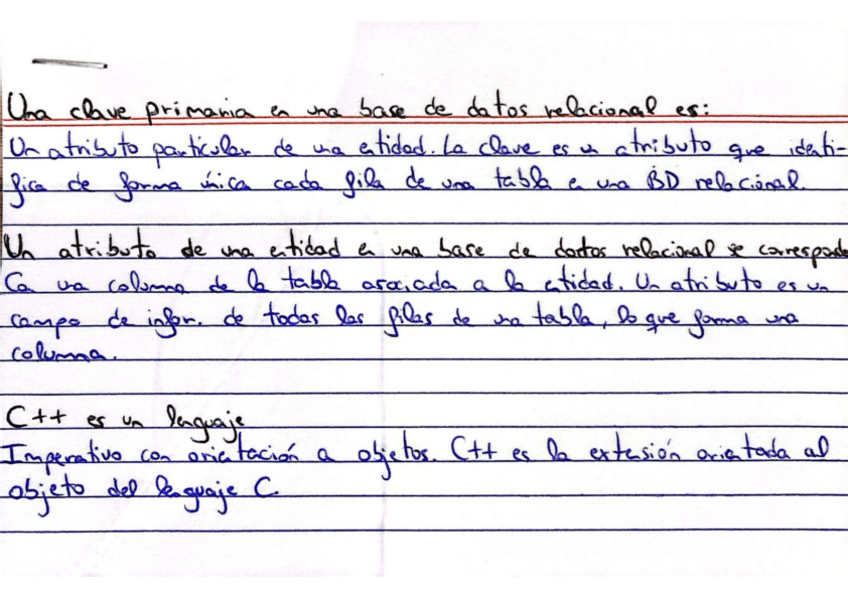 Una clave primaria en una base de datos relacional es:
Un atributo particular de una entidad. La clave es un atributo que identi-
fica de forma única cada fila de una tabla en una BD relacional.
Un atributo de una entidad en una base de datos relacional se corresponde
Con una columna de la tabla asociada a la entidad. Un atributo es un
campo de infor. de todas las filas de una tabla, lo que forma una
columna.
C++ es un lenguaje
Imperativo con orientación a objetos. C++ es la extensión orientada al
objeto del lenguaje C.